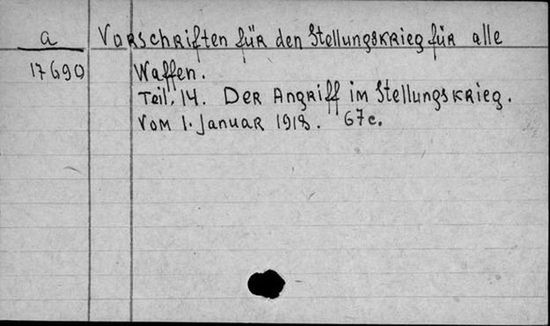 a Vorschriften für den Stellungskrieg für alle
17690 Waffen.
Teil. 14. Der Angriff im Stellungskrieg.
Vom 1. Januar 1918. 67c.